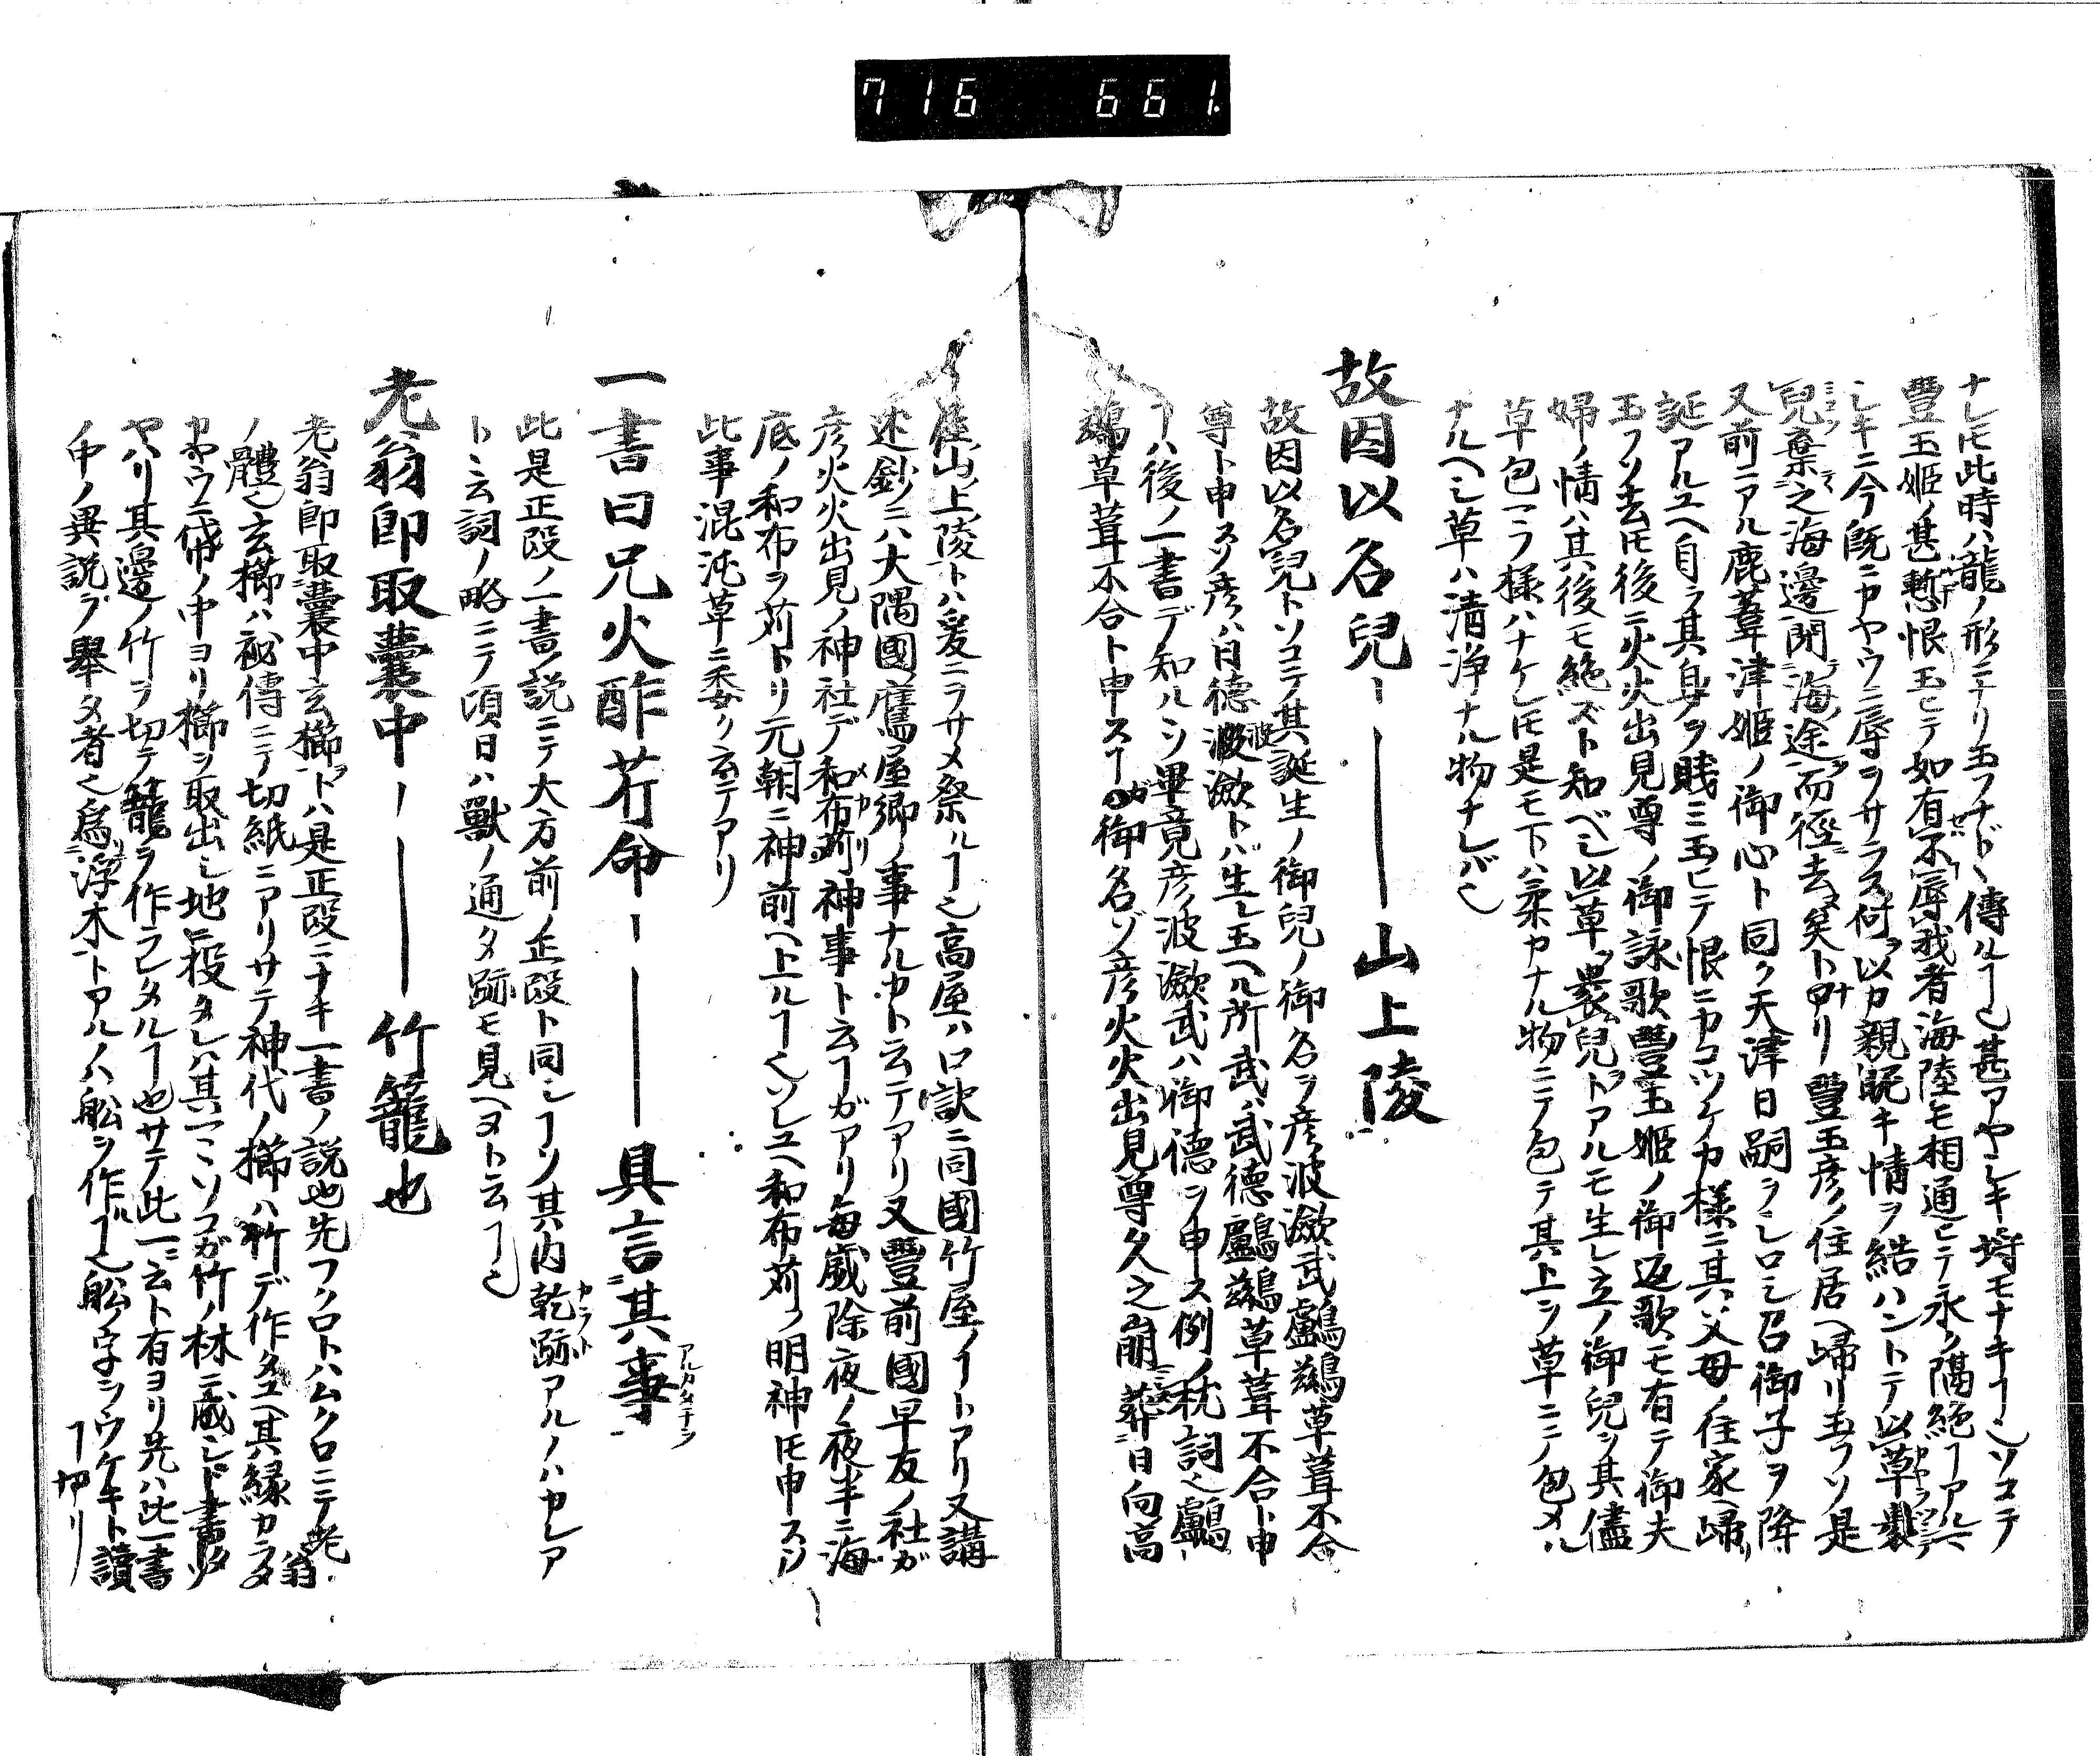 716 661.
ナレ𪜈此時ハ龍ノ形ニナリ玉フナド、傳ルヿ也甚アヤシキ㕝モナキヿ也ソコテ
豐玉姫ノ甚慙恨玉ヒテ如有不辱我者海陸モ相通ヒテ永ク隔絶ヿアルマ
シキニ今既ニカヤウニ辱ヲサラス何以カ親眤キ情ヲ結ハントテ以草裹
兒棄之海邊閇海途而徑去矣トアリ豐玉彦ノ住居ヘ歸リ玉フソ是
又前ニアル鹿葦津姫ノ御心ト同ク天津日嗣ヲシロシ召御子ヲ降
誕アルユヘ自ラ其身ヲ賤ミ玉ヒテ恨ニカコツケカ様ニ其父母ノ住家ヘ歸リ
玉フソ去𪜈後ニ火火出見尊ノ御詠歌豐玉姫ノ御返歌モ有テ御夫
婦ノ情ハ其後モ絶ズト知ベシ以草裹兒トアルモ生レ立ノ御兒ヲ其儘
草包ニラ様ハナケレ𪜈是モ下ハ柔カナル物ニテ包テ其上ヲ草ニテ包メル
ナルヘシ草ハ清浄ナル物ナレバ也
故因以名兒ー——山上陵
故因以名兒トソコテ其誕生ノ御兒ノ御名ヲ彦波瀲武鸕鷀草葺不合
尊ト申スソ彦ハ日徳波瀲トハ生レ玉ヘル所武ハ武徳鸕鷀草葺不合ト申
ヿハ後ノ一書デ知ルソ畢竟彦波瀲武ハ御徳ヲ申ス例ノ枕詞也鸕
鷀草葺不合ト申スヿガ御名ゾ彦火火出見尊久之崩葬日向高
屋山上陵トハ爰ニヲサメ祭ルヿ也高屋ハ口訣ニ同國竹屋ノヿトアリ又講
述鈔ニハ大隅國鷹屋郷ノ事ナルカト云テアリ又豐前國早友ノ社ガ
彦火火出見ノ神社デ和布刈神事ト云ヿガアリ毎歳除夜ノ夜半ニ海
底ノ和布ヲ苅トリ元朝ニ神前ヘ上ルヿ也ソレユヘ和布苅ノ明神𪜈申スソ
此事混沌草ニ委ク云テアリ
一書曰兄火酢芹命ー——具言其事
此是正段ノ一書ノ説ニテ大方前ノ正段ト同シヿソ其内乾跡アルノハカレア
トト云詞ノ略ニテ項日ハ獸ノ通タ跡モ見ヘヌト云ヿ也
老翁即取囊中ー——竹籠也
老翁即取囊中玄櫛トハ是正段ニナキ一書ノ説也先フクロトハムクロニテ老翁
ノ體也玄櫛ハ祕傳ニテ切紙ニアリサテ神代ノ櫛ハ竹デ作タユヘ其縁カラタ
カホウニ袋ノ中ヨリ櫛ヲ取出シ地ニ投タレハ其マヽソコガ竹ノ林ニ成シト書タソ
ヤハリ其邊ノ竹ヲ切テ籠ヲ作ラレタルヿ也サテ此一ニ云ト有ヨリ先ハ此一書
ノ中ノ異説ヲ舉タ者也爲浮木トアルノハ舩ヲ作ルヿ也舩ノ字ヲウケキト讀
ヿアリ